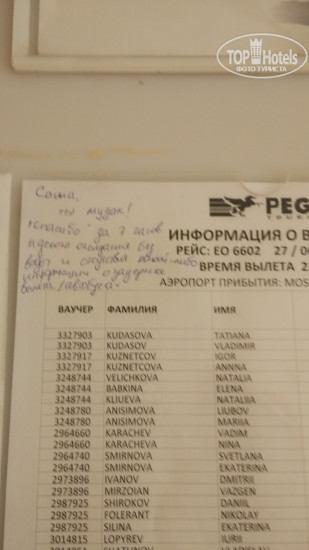 TOP Hotels
ФОТО ТУРИСТА
Саша,
ты мудак!
"спасибо" за 7 часов
адского ожидания без
воды и отсутствия какой-либо
информации о задержке
PEG
TOUR
ИНФОРМАЦИЯ О В
РЕЙС: EO 6602 27 / 0
ВРЕМЯ ВЫЛЕТА 2
АЭРОПОРТ ПРИБЫТИЯ: MOS
ВАУЧЕР ФАМИЛИЯ ИМЯ
3327903 KUDASOVA TATIANA
3327903 KUDASOV VLADIMIR
3327917 KUZNETCOV IGOR
3327917 KUZNETCOVA ANNNA
3248744 VELICHKOVA NATALIA
3248744 BABKINA ELENA
3248744 KLIUEVA NATALIIA
3248780 ANISIMOVA LIUBOV
3248780 ANISIMOVA MARIIA
2964660 KARACHEV VADIM
2964660 KARACHEVA NINA
2964740 SMIRNOVA SVETLANA
2964740 SMIRNOVA EKATERINA
2973896 IVANOV DMITRII
2973896 MIRZOIAN VAZGEN
2987925 SHIROKOV DANIIL
2987925 FOLERANT NIKOLAY
2987925 SILINA EKATERINA
3014815 LOPYREV IURII